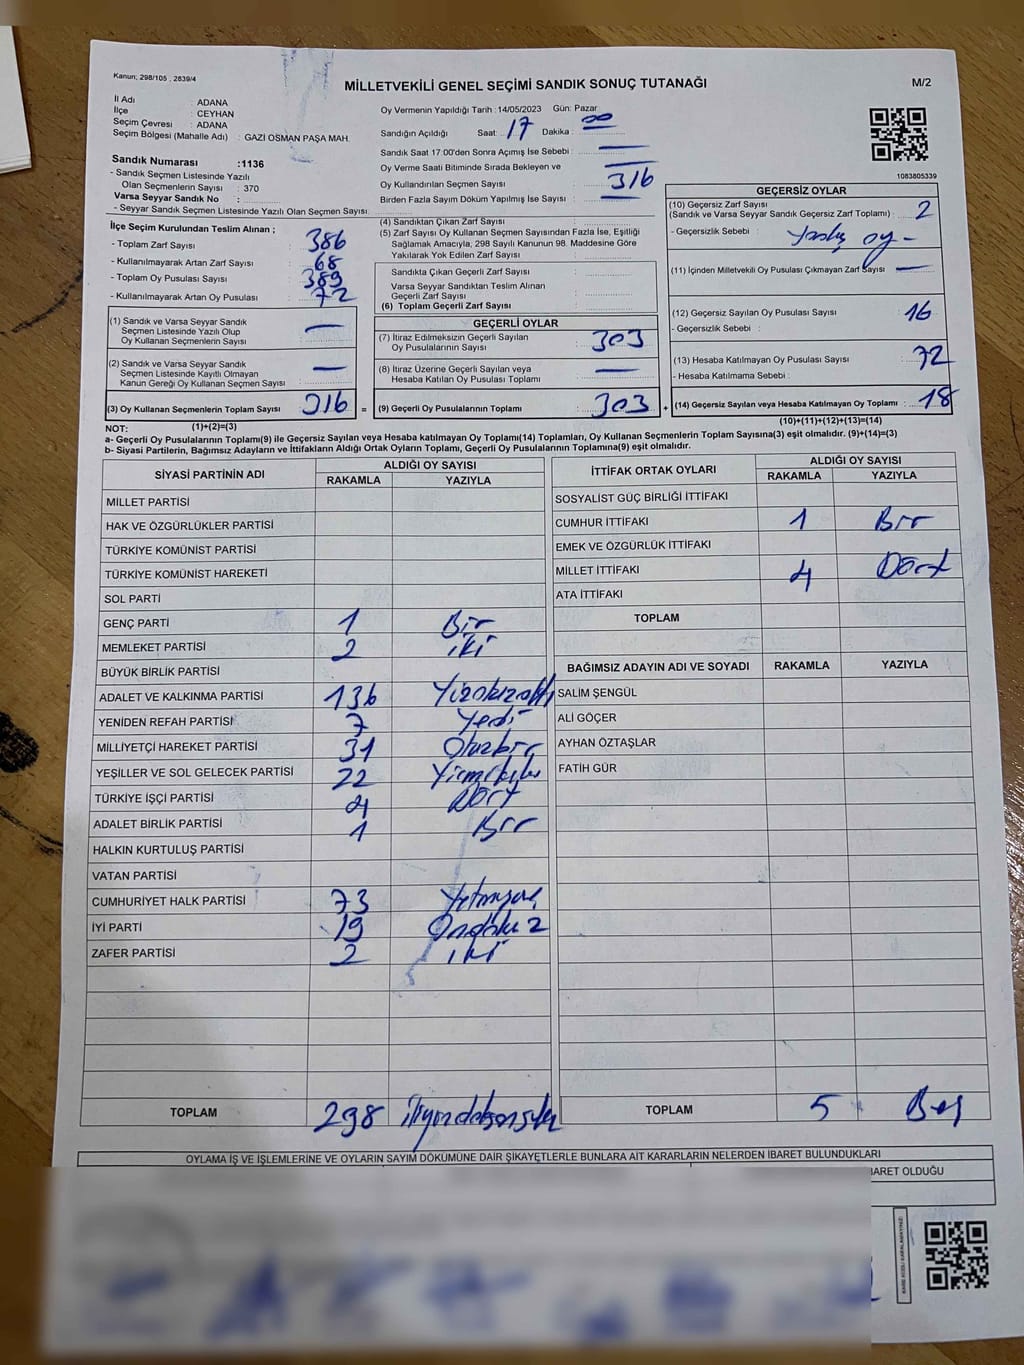 Kanun; 298/105 , 2839/4
MİLLETVEKİLİ GENEL SEÇİMİ SANDIK SONUÇ TUTANAĞI
M/2
İl Adı : ADANA
İlçe : CEYHAN
Seçim Çevresi : ADANA
Seçim Bölgesi (Mahalle Adı) : GAZİ OSMAN PAŞA MAH.
Sandık Numarası :1136
- Sandık Seçmen Listesinde Yazılı
Olan Seçmenlerin Sayısı : 370
Varsa Seyyar Sandık No :
- Seyyar Sandık Seçmen Listesinde Yazılı Olan Seçmen Sayısı:
Oy Vermenin Yapıldığı Tarih :14/05/2023 Gün: Pazar
Sandığın Açıldığı Saat: 17 Dakika : 00
Sandık Saat 17:00'den Sonra Açımış İse Sebebi : —
Oy Verme Saati Bitiminde Sırada Bekleyen ve : —
Oy Kullandırılan Seçmen Sayısı : 316
Birden Fazla Sayım Döküm Yapılmış İse Sayısı : —
1083805339
İlçe Seçim Kurulundan Teslim Alınan ;
- Toplam Zarf Sayısı : 386
- Kullanılmayarak Artan Zarf Sayısı : 68
- Toplam Oy Pusulası Sayısı : 389
- Kullanılmayarak Artan Oy Pusulası : 72
(1) Sandık ve Varsa Seyyar Sandık
Seçmen Listesinde Yazılı Olup
Oy Kullanan Seçmenlerin Sayısı : —
(2) Sandık ve Varsa Seyyar Sandık
Seçmen Listesinde Kayıtlı Olmayan
Kanun Gereği Oy Kullanan Seçmen Sayısı : —
(3) Oy Kullanan Seçmenlerin Toplam Sayısı : 316 =
(1)+(2)=(3)
(4) Sandıktan Çıkan Zarf Sayısı :
(5) Zarf Sayısı Oy Kullanan Seçmen Sayısından Fazla İse, Eşitliği
Sağlamak Amacıyla, 298 Sayılı Kanunun 98. Maddesine Göre
Yakılarak Yok Edilen Zarf Sayısı :
Sandıkta Çıkan Geçerli Zarf Sayısı :
Varsa Seyyar Sandıktan Teslim Alınan
Geçerli Zarf Sayısı :
(6) Toplam Geçerli Zarf Sayısı :
GEÇERLİ OYLAR
(7) İtiraz Edilmeksizin Geçerli Sayılan
Oy Pusulalarının Sayısı : 303
(8) İtiraz Üzerine Geçerli Sayılan veya
Hesaba Katılan Oy Pusulası Toplamı : —
(9) Geçerli Oy Pusulalarının Toplamı : 303 +
GEÇERSİZ OYLAR
(10) Geçersiz Zarf Sayısı
(Sandık ve Varsa Seyyar Sandık Geçersiz Zarf Toplamı) : 2
- Geçersizlik Sebebi : oy -
(11) İçinden Milletvekili Oy Pusulası Çıkmayan Zarf Sayısı : —
(12) Geçersiz Sayılan Oy Pusulası Sayısı : 16
- Geçersizlik Sebebi :
(13) Hesaba Katılmayan Oy Pusulası Sayısı : 72
- Hesaba Katılmama Sebebi :
(14) Geçersiz Sayılan veya Hesaba Katılmayan Oy Toplamı : 18
(10)+(11)+(12)+(13)=(14)
NOT:
a- Geçerli Oy Pusulalarının Toplamı(9) ile Geçersiz Sayılan veya Hesaba katılmayan Oy Toplamı(14) Toplamları, Oy Kullanan Seçmenlerin Toplam Sayısına(3) eşit olmalıdır. (9)+(14)=(3)
b- Siyasi Partilerin, Bağımsız Adayların ve İttifakların Aldığı Ortak Oyların Toplamı, Geçerli Oy Pusulalarının Toplamına(9) eşit olmalıdır.
SİYASİ PARTİNİN ADI ALDIĞI OY SAYISI
RAKAMLA YAZIYLA
MİLLET PARTİSİ
HAK VE ÖZGÜRLÜKLER PARTİSİ
TÜRKİYE KOMÜNİST PARTİSİ
TÜRKİYE KOMÜNİST HAREKETİ
SOL PARTİ
GENÇ PARTİ 1 Bir
MEMLEKET PARTİSİ 2 iki
BÜYÜK BİRLİK PARTİSİ
ADALET VE KALKINMA PARTİSİ 136 Yüzotuzaltı
YENİDEN REFAH PARTİSİ 7 Yedi
MİLLİYETÇİ HAREKET PARTİSİ 31 Otuzbir
YEŞİLLER VE SOL GELECEK PARTİSİ 22 Yirmiiki
TÜRKİYE İŞÇİ PARTİSİ 4 Dört
ADALET BİRLİK PARTİSİ 1 Bir
HALKIN KURTULUŞ PARTİSİ
VATAN PARTİSİ
CUMHURİYET HALK PARTİSİ 73 Yetmişüç
İYİ PARTİ 19 Ondokuz
ZAFER PARTİSİ 2 iki
TOPLAM 298 ikiyüzdoksansekiz
İTTİFAK ORTAK OYLARI ALDIĞI OY SAYISI
RAKAMLA YAZIYLA
SOSYALİST GÜÇ BİRLİĞİ İTTİFAKI
CUMHUR İTTİFAKI 1 Bir
EMEK VE ÖZGÜRLÜK İTTİFAKI
MİLLET İTTİFAKI 4 Dört
ATA İTTİFAKI
TOPLAM
BAĞIMSIZ ADAYIN ADI VE SOYADI RAKAMLA YAZIYLA
SALİM ŞENGÜL
ALİ GÖÇER
AYHAN ÖZTAŞLAR
FATİH GÜR
TOPLAM 5 Beş
OYLAMA İŞ VE İŞLEMLERİNE VE OYLARIN SAYIM DÖKÜMÜNE DAİR ŞİKAYETLERLE BUNLARA AİT KARARLARIN NELERDEN İBARET BULUNDUKLARI
İBARET OLDUĞU